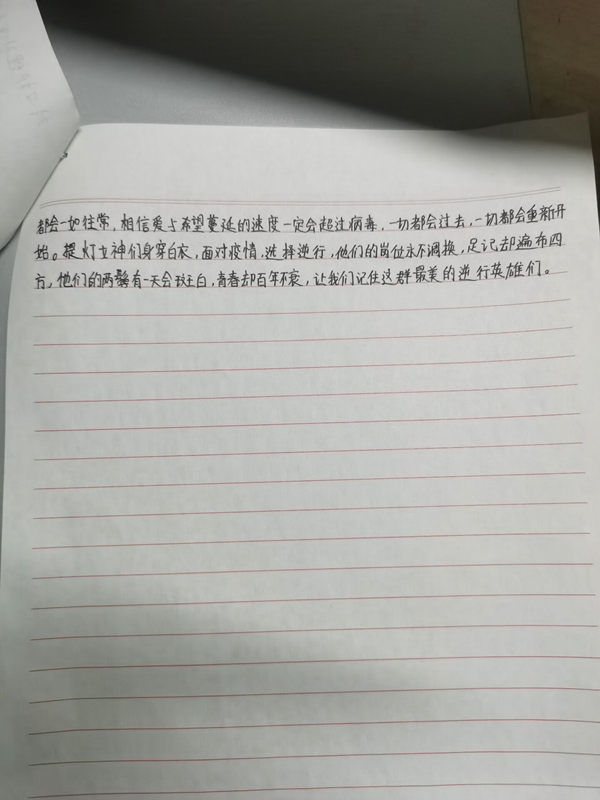 都会一如往常,相信爱与希望蔓延的速度一定会超过病毒,一切都会过去,一切都会重新开
始。提灯女神们身穿白衣,面对疫情,选择逆行,他们的岗位永不调换,足记却遍布四
方,他们的两鬓有一天会斑白,青春却百年不衰,让我们记住这群最美的逆行英雄们。